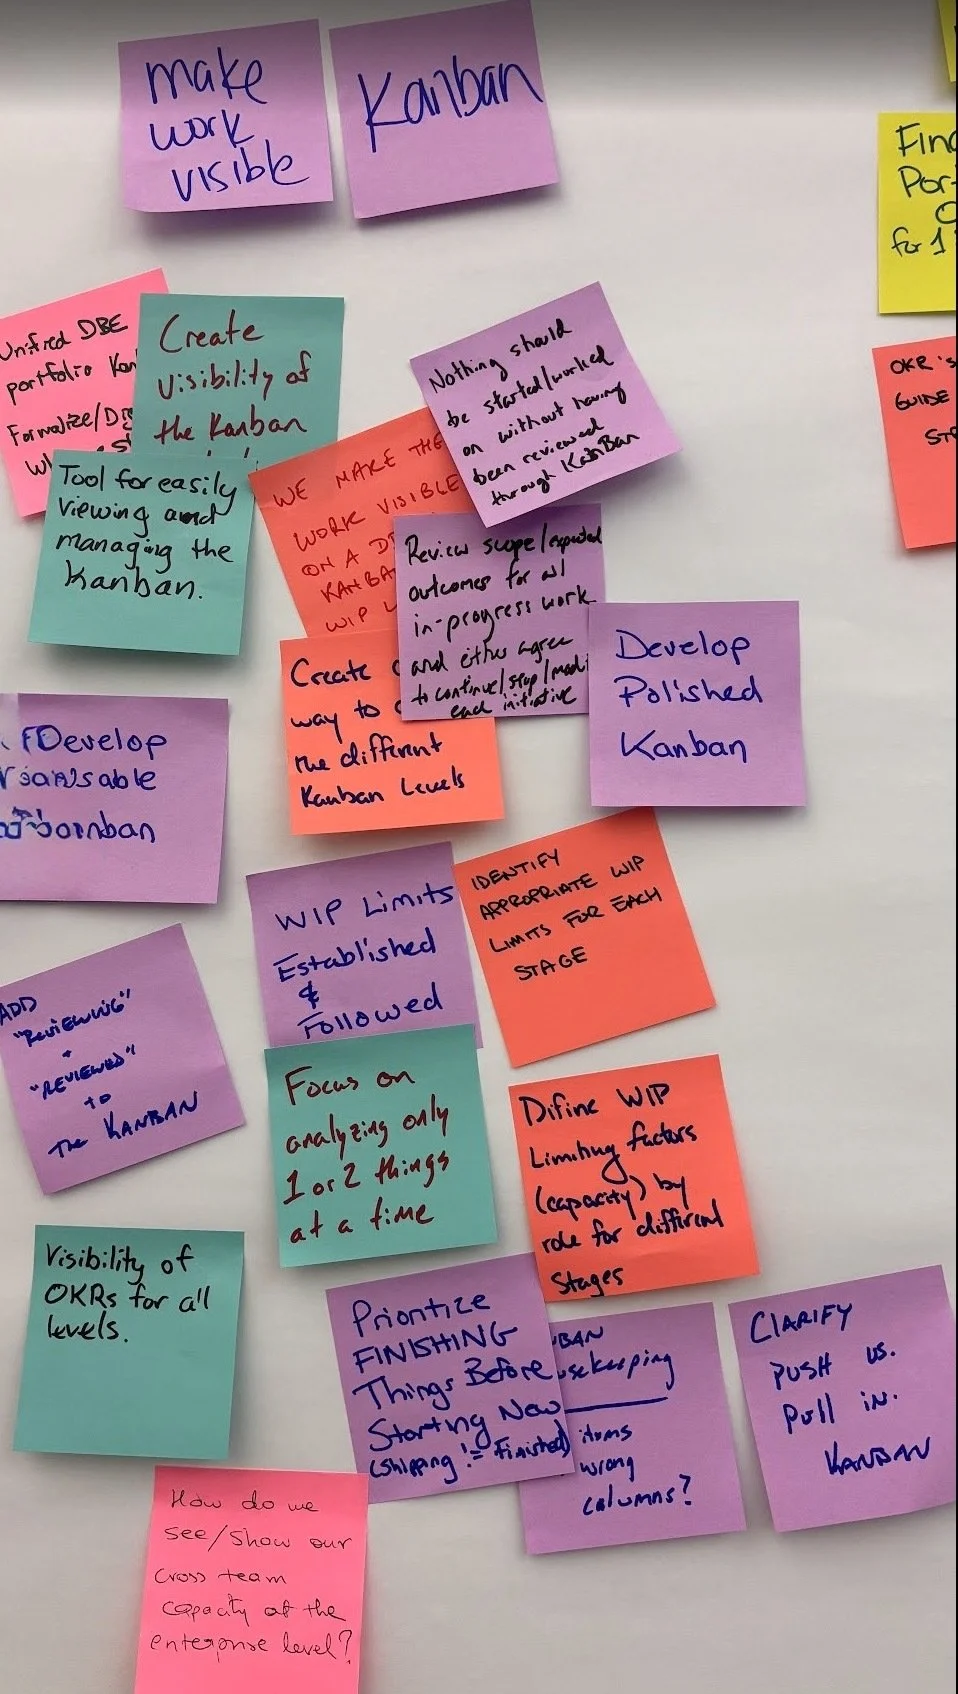 make
work
visible
Kanban
Find
for 1
Unified DBE
portfolio Kan
Formalize/
Create
visibility of
the Kanban
Nothing should
be started/worked
on without having
been reviewed
through KanBan
OKR's
GUIDE
Tool for easily
viewing and
managing the
Kanban.
WE MAKE THE
WORK VISIBLE
ON A
KANBA
WIP
Review scope/expected
outcomes for all
in-progress work
and either agree
to continue/stop/modi
each initiative
Create
way to
the different
Kanban Levels
Develop
Polished
Kanban
Develop
WIP Limits
Established
&
Followed
IDENTIFY
APPROPRIATE WIP
LIMITS FOR EACH
STAGE
ADD
"Reviewing"
+
"REVIEWED"
to
The KANBAN
Focus on
analyzing only
1 or 2 things
at a time
Difine WIP
Limiting factors
(capacity) by
role for different
Stages
Visibility of
OKRs for all
levels.
Prioritize
FINISHING
Things Before
Starting New
(shipping != Finished)
BAN
usekeeping
items
wrong
columns?
CLARIFY
PUSH vs.
Pull in.
KANBAN
How do we
see/show our
cross team
capacity at the
enterprise level?